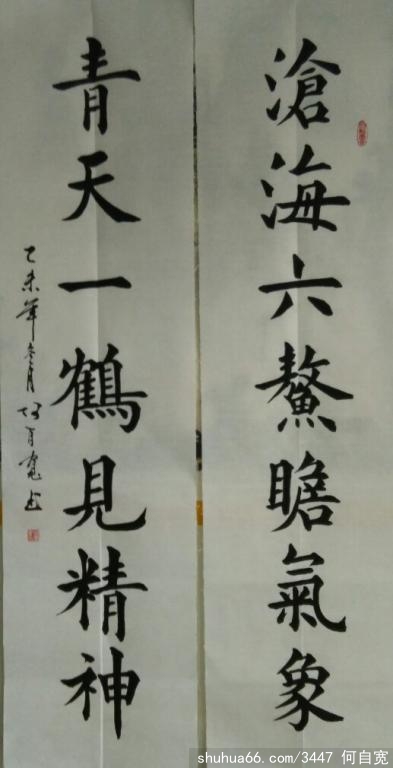 滄海六鰲瞻氣象
青天一鶴見精神
乙未年冬月何自寬書
shuhua66.com/3447 何自宽